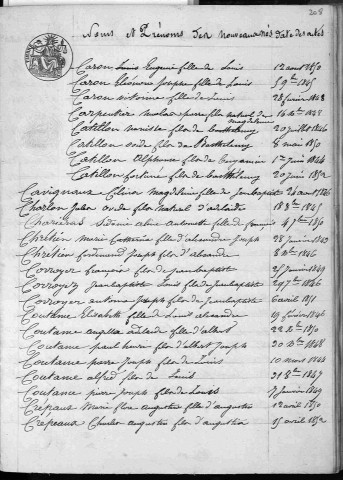 208
Noms et Prénoms des nouveaux nés Date des actes
Caron Louis Eugénie fille de Louis 12 aout 1850
Caron Eléonore Josephe fille de Louis 5 9bre 1845
Caron Victorine fille de Louis 28 fevrier 1848
Carpentier Nicolas pierre fils naturel de Magdeleine 16 1848
Catillon fils de Barthélemy 20 juillet 1846
Catillon fils de Barthélemy 8 mai 1850
Catillon Alphonse fils de Benjamin 1er Juin 1844
Catillon fortuné fils de Barthélemy 20 juin 1852
Cavignaux Magdeleine fille de Jeanbaptiste aout 1846
Charlon Julien fils Naturel d'adelaide 18 8bre 1845
Charières Sidonie aline antoinette fille de françois 4 7bre 1850
Chrétien Marie Catherine fille d'alexandre Joseph 28 Janvier
Chrétien ferdinand Joseph fils d'alexandre 8 1846
Corroyer françois fils de Jeanbaptiste 25 Janvier 1849
Corroyez Jeanbaptiste Louis fils de Jeanbaptiste 29 7bre 1846
Corroyer antoine Joseph fils de Jeanbaptiste 6 avril 1851
Coutame Elisabeth fille de Louis alexandre 19 février 1846
Coutame fille d'albert 22 1850
Coutame paul henri fils d'albert Joseph 30 1848
Coutame pierre Joseph fils de Louis 10 mars 1844
Coutame alfred fils de Louis 21 8bre 1847
Coutance pierre Joseph fils de Louis 7 Janvier 1849
Crépeaux Marie flore augustine fille d'augustin 12 avril 1850
Crépeaux Charles augustin fils d'augustin 15 avril 1852